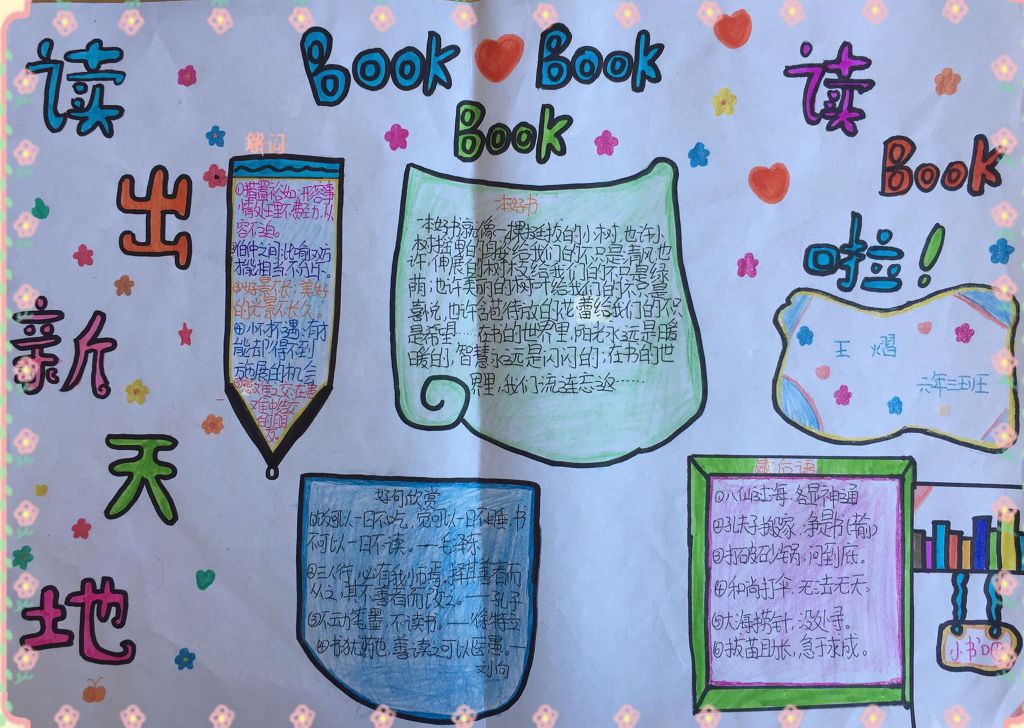 读
出
新
天
地
Book Book
Book
读
Book
啦!
解词
①措置裕如:形容事
情处理不费力,从
容不迫。
②伯仲之间:比喻双方
才能相当,不分上下。
③好景不长:美好
的光景不长久。
④怀才不遇:有才
能却得不到
施展的机会
⑤患难之交:在患
难中结交
的朋
友。
一本好书
一本好书就像一棵挺拔的小树,也许小
树摇曳的身姿给我们的不只是清风,也
许伸展的树枝给我们的不只是绿
荫;也许美丽的树叶给我们的不只是
喜悦,也许含苞待放的花蕾给我们的不只
是希望……在书的世界里,阳光永远是暖
暖的,智慧永远是闪闪的;在书的世
界里,我们流连忘返……
王 熠
六年三班
好句欣赏
①饭可以一日不吃,觉可以一日不睡,书
不可以一日不读。——毛泽东
②三人行,必有我师焉。择其善者而
从之,其不善者而改之。——孔子
③不动笔墨,不读书。——徐特立
④书犹药也,善读之可以医愚。——
刘向
歇后语
①八仙过海,各显神通
②孔夫子搬家,净是书(输)
③打破砂锅,问到底。
④和尚打伞,无法无天。
⑤大海捞针,没处寻。
⑥拔苗助长,急于求成。
小书吧